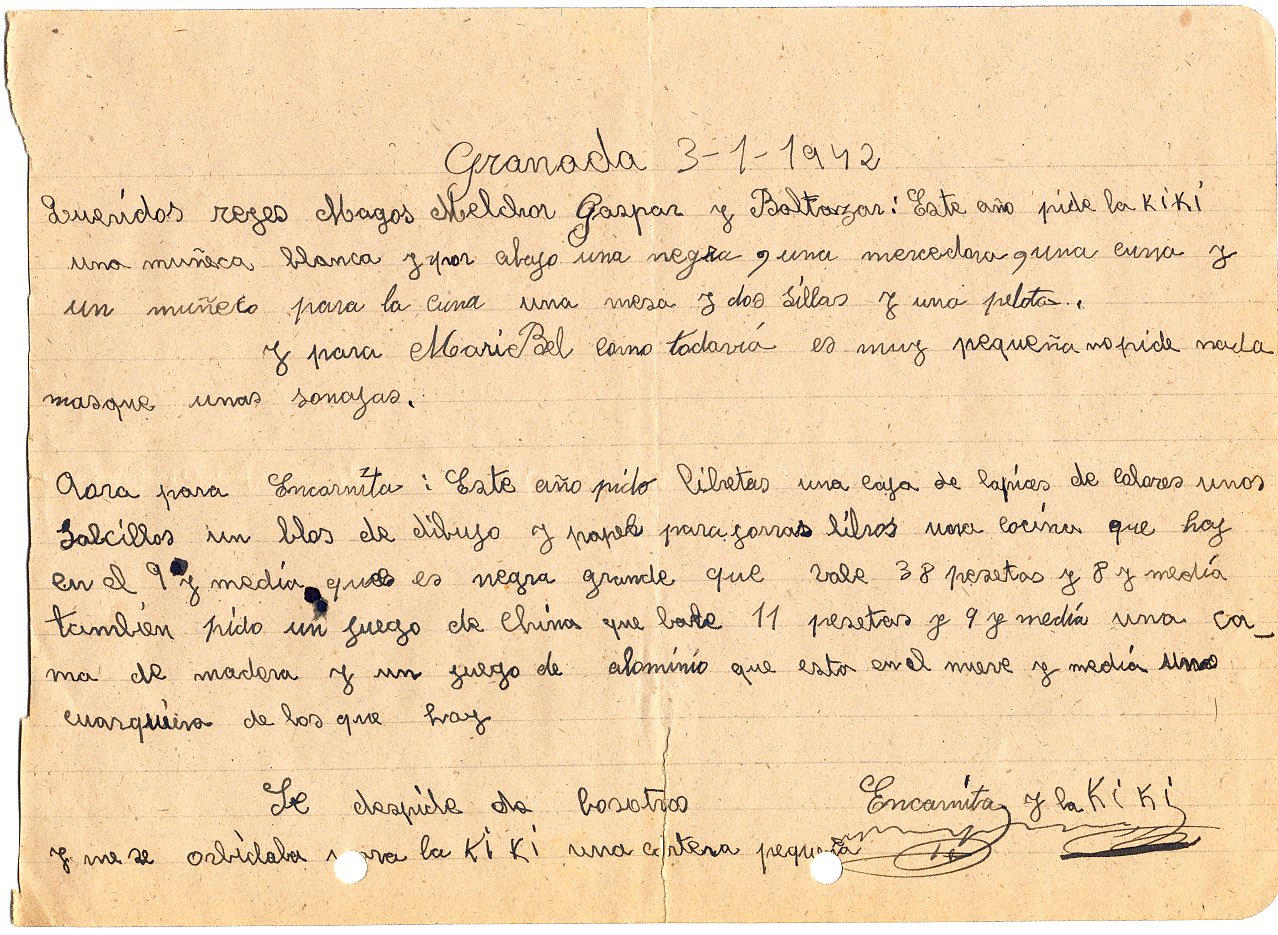 Granada 3-1-1942
Queridos reyes Magos Melchor Gaspar y Baltarzar: Este año pide la KiKi
una muñeca blanca y por abajo una negra, una mercedora, una cuna y
un muñeco para la cuna una mesa y dos sillas y una pelota.
Y para MarieBel como todaviá es muy pequeña no pide nada
masque unas sonajas.
Aora para Encarnita: Este año pido libretas una caja de lapices de colores unos
salcillos un blos de dibujo y papel para jorras libros una cocina que hay
en el 9 y media que es negra grande que vale 38 pesetas y 8 y media
tambien pido un juego de China que bale 11 pesetas y 9 y media una ca_
ma de madera y un juego de alominio que esta en el nueve y mediá uno
cuarquiera de los que hay
Se despide de bosotros Encarnita y la KiKi
y me se orbidaba para la KiKi una cartera pequeña